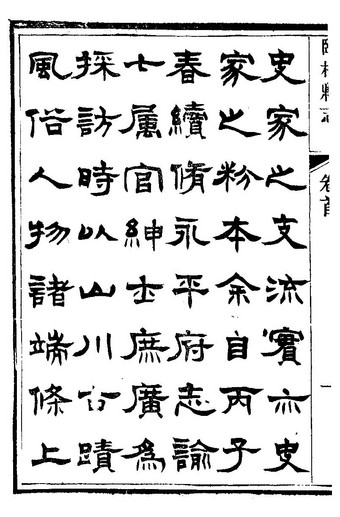 臨榆縣志 卷首 一
史家之支流實亦史
家之粉本余自丙子
春續脩永平府志諭
七属官紳士庶廣為
採訪時以山川古蹟
風俗人物諸端條上